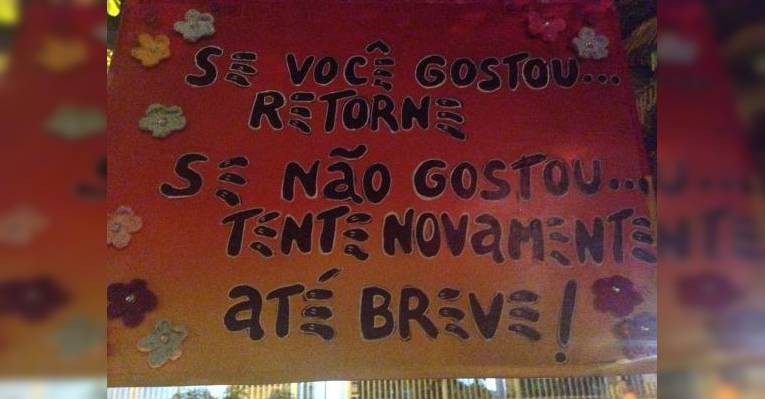 SE VOCÊ GOSTOU...
RETORNE
SE NÃO GOSTOU...
TENTE NOVAMENTE
ATÉ BREVE!